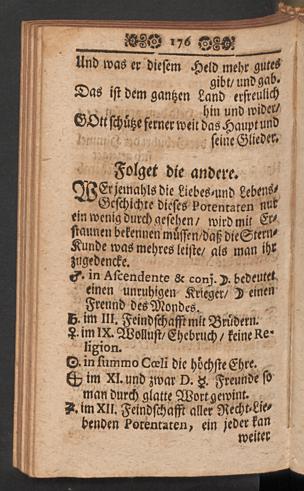 176
Und was er diesem Held mehr gutes
gibt/ und gab.
Das ist dem gantzen Land erfreulich
hin und wider/
GOtt schütze ferner weit das Haupt und
seine Glieder.
Folget die andere.
WEr jemahls die Liebes-und Lebens-
Geschichte dieses Potentaten nur
ein wenig durch gesehen/ wird mit Er-
staunen bekennen müssen/ daß die Stern-
Kunde was mehres leiste/ als man ihr
zugedencke.
♂. in Ascendente & conj. ☽. bedeutet
einen unruhigen Krieger/ ☽ einen
Freund des Mondes.
♄. im III. Feindschafft mit Brüdern.
♀. im IX. Wollust/ Ehebruch/ keine Re-
ligion.
☉. in summo Cœli die höchste Ehre.
⊕ im XI. und zwar D. ☿. Freunde so
man durch glatte Wort gewint.
♃. im XII. Feindschafft aller Recht-Lie-
benden Potentaten, ein jeder kan
weiter